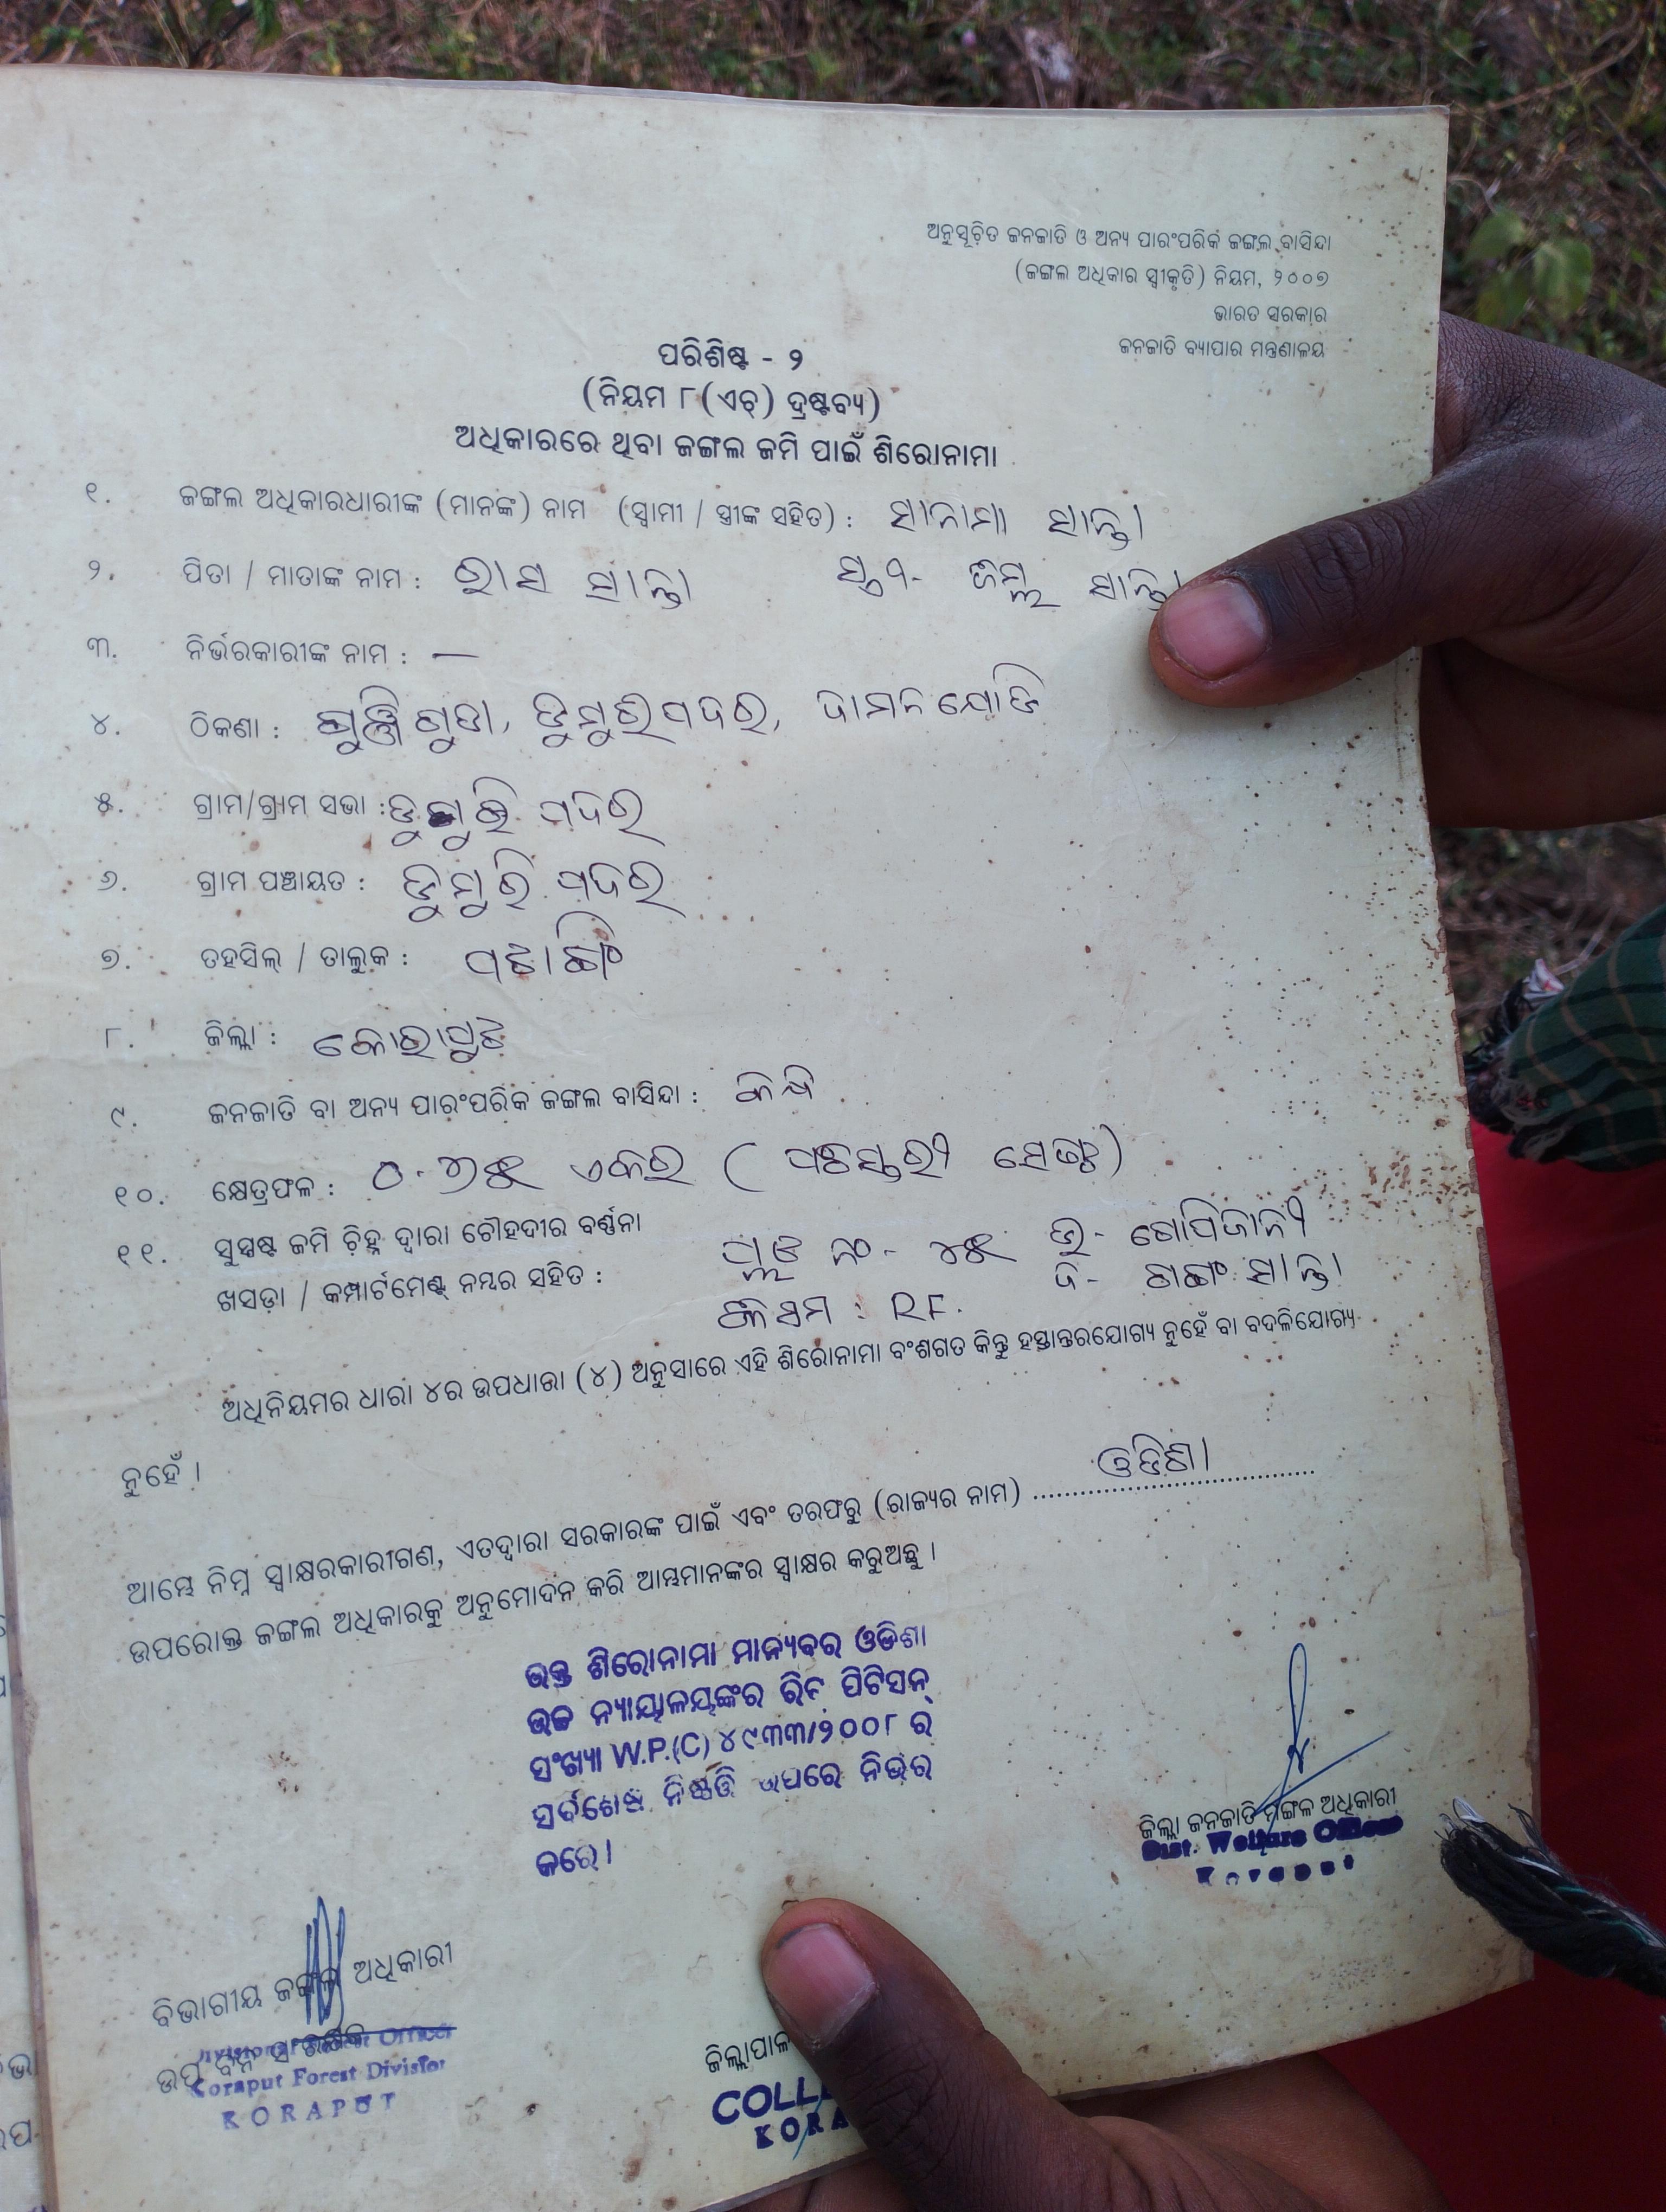 ଅନୁସୂଚିତ ଜନଜାତି ଓ ଅନ୍ୟ ପାରଂପରିକ ଜଙ୍ଗଲ ବାସିନ୍ଦା
(ଜଙ୍ଗଲ ଅଧିକାର ସ୍ୱୀକୃତି) ନିୟମ, ୨୦୦୭
ଭାରତ ସରକାର
ଜନଜାତି ବ୍ୟାପାର ମନ୍ତ୍ରଣାଳୟ
ପରିଶିଷ୍ଟ - ୨
(ନିୟମ ୮(ଏଚ୍) ଦ୍ରଷ୍ଟବ୍ୟ)
ଅଧିକାରରେ ଥିବା ଜଙ୍ଗଲ ଜମି ପାଇଁ ଶିରୋନାମା
୧. ଜଙ୍ଗଲ ଅଧିକାରଧାରୀଙ୍କ (ମାନଙ୍କ) ନାମ (ସ୍ୱାମୀ / ସ୍ତ୍ରୀଙ୍କ ସହିତ) : ସାନାମା ସାନ୍ତା
୨. ପିତା / ମାତାଙ୍କ ନାମ : ରାସ ସାନ୍ତା ସାନ୍ତା
୩. ନିର୍ଭରକାରୀଙ୍କ ନାମ : —
୪. ଠିକଣା : ଗୁଞ୍ଜିଗୁଡା, ଡୁମୁରିପଦର, ଦାମନଯୋଡି
୫. ଗ୍ରାମ/ଗ୍ରାମ ସଭା : ଡୁମୁରି ପଦର
୬. ଗ୍ରାମ ପଞ୍ଚାୟତ : ଡୁମୁରି ପଦର
୭. ତହସିଲ୍ / ତାଲୁକ : ପଟାଙ୍ଗି
୮. ଜିଲ୍ଲା : କୋରାପୁଟ
୯. ଜନଜାତି ବା ଅନ୍ୟ ପାରଂପରିକ ଜଙ୍ଗଲ ବାସିନ୍ଦା :
୧୦. କ୍ଷେତ୍ରଫଳ : ଏକର
୧୧. ସୁସ୍ପଷ୍ଟ ଜମି ଚିହ୍ନ ଦ୍ୱାରା ଚୌହଦୀର ବର୍ଣ୍ଣନା
ଖସଡ଼ା / କମ୍ପାର୍ଟମେଣ୍ଟ୍ ନମ୍ବର ସହିତ : ପ୍ଲଟ ନଂ - ୪୫ ଉ - ଗୋପିଜାନୀ
ଦ - ସାନ୍ତା
କିସମ : RF.
ଅଧିନିୟମର ଧାରା ୪ର ଉପଧାରା (୪) ଅନୁସାରେ ଏହି ଶିରୋନାମା ବଂଶଗତ କିନ୍ତୁ ହସ୍ତାନ୍ତରଯୋଗ୍ୟ ନୁହେଁ ବା ବଦଳିଯୋଗ୍ୟ
ନୁହେଁ ।
ଆମ୍ଭେ ନିମ୍ନ ସ୍ୱାକ୍ଷରକାରୀଗଣ, ଏତଦ୍ୱାରା ସରକାରଙ୍କ ପାଇଁ ଏବଂ ତରଫରୁ (ରାଜ୍ୟର ନାମ) ଓଡିଶା
ଉପରୋକ୍ତ ଜଙ୍ଗଲ ଅଧିକାରକୁ ଅନୁମୋଦନ କରି ଆମ୍ଭମାନଙ୍କର ସ୍ୱାକ୍ଷର କରୁଅଛୁ ।
ଉକ୍ତ ଶିରୋନାମା ମାନ୍ୟବର ଓଡିଶା
ଉଚ୍ଚ ନ୍ୟାୟାଳୟଙ୍କର ରିଟ ପିଟିସନ୍
ସଂଖ୍ୟା W.P.(C) ୪୯୩୩/୨୦୦୮ ର
ସର୍ବଶେଷ ନିଷ୍ପତ୍ତି ଉପରେ ନିର୍ଭର
କରେ ।
ଜିଲ୍ଲା ଜନଜାତି ମଙ୍ଗଳ ଅଧିକାରୀ
Dist. Welfare Officer
ବିଭାଗୀୟ ଜଙ୍ଗଲ ଅଧିକାରୀ
Officer
Koraput Forest Division
KORAPUT
ଜିଲ୍ଲାପାଳ